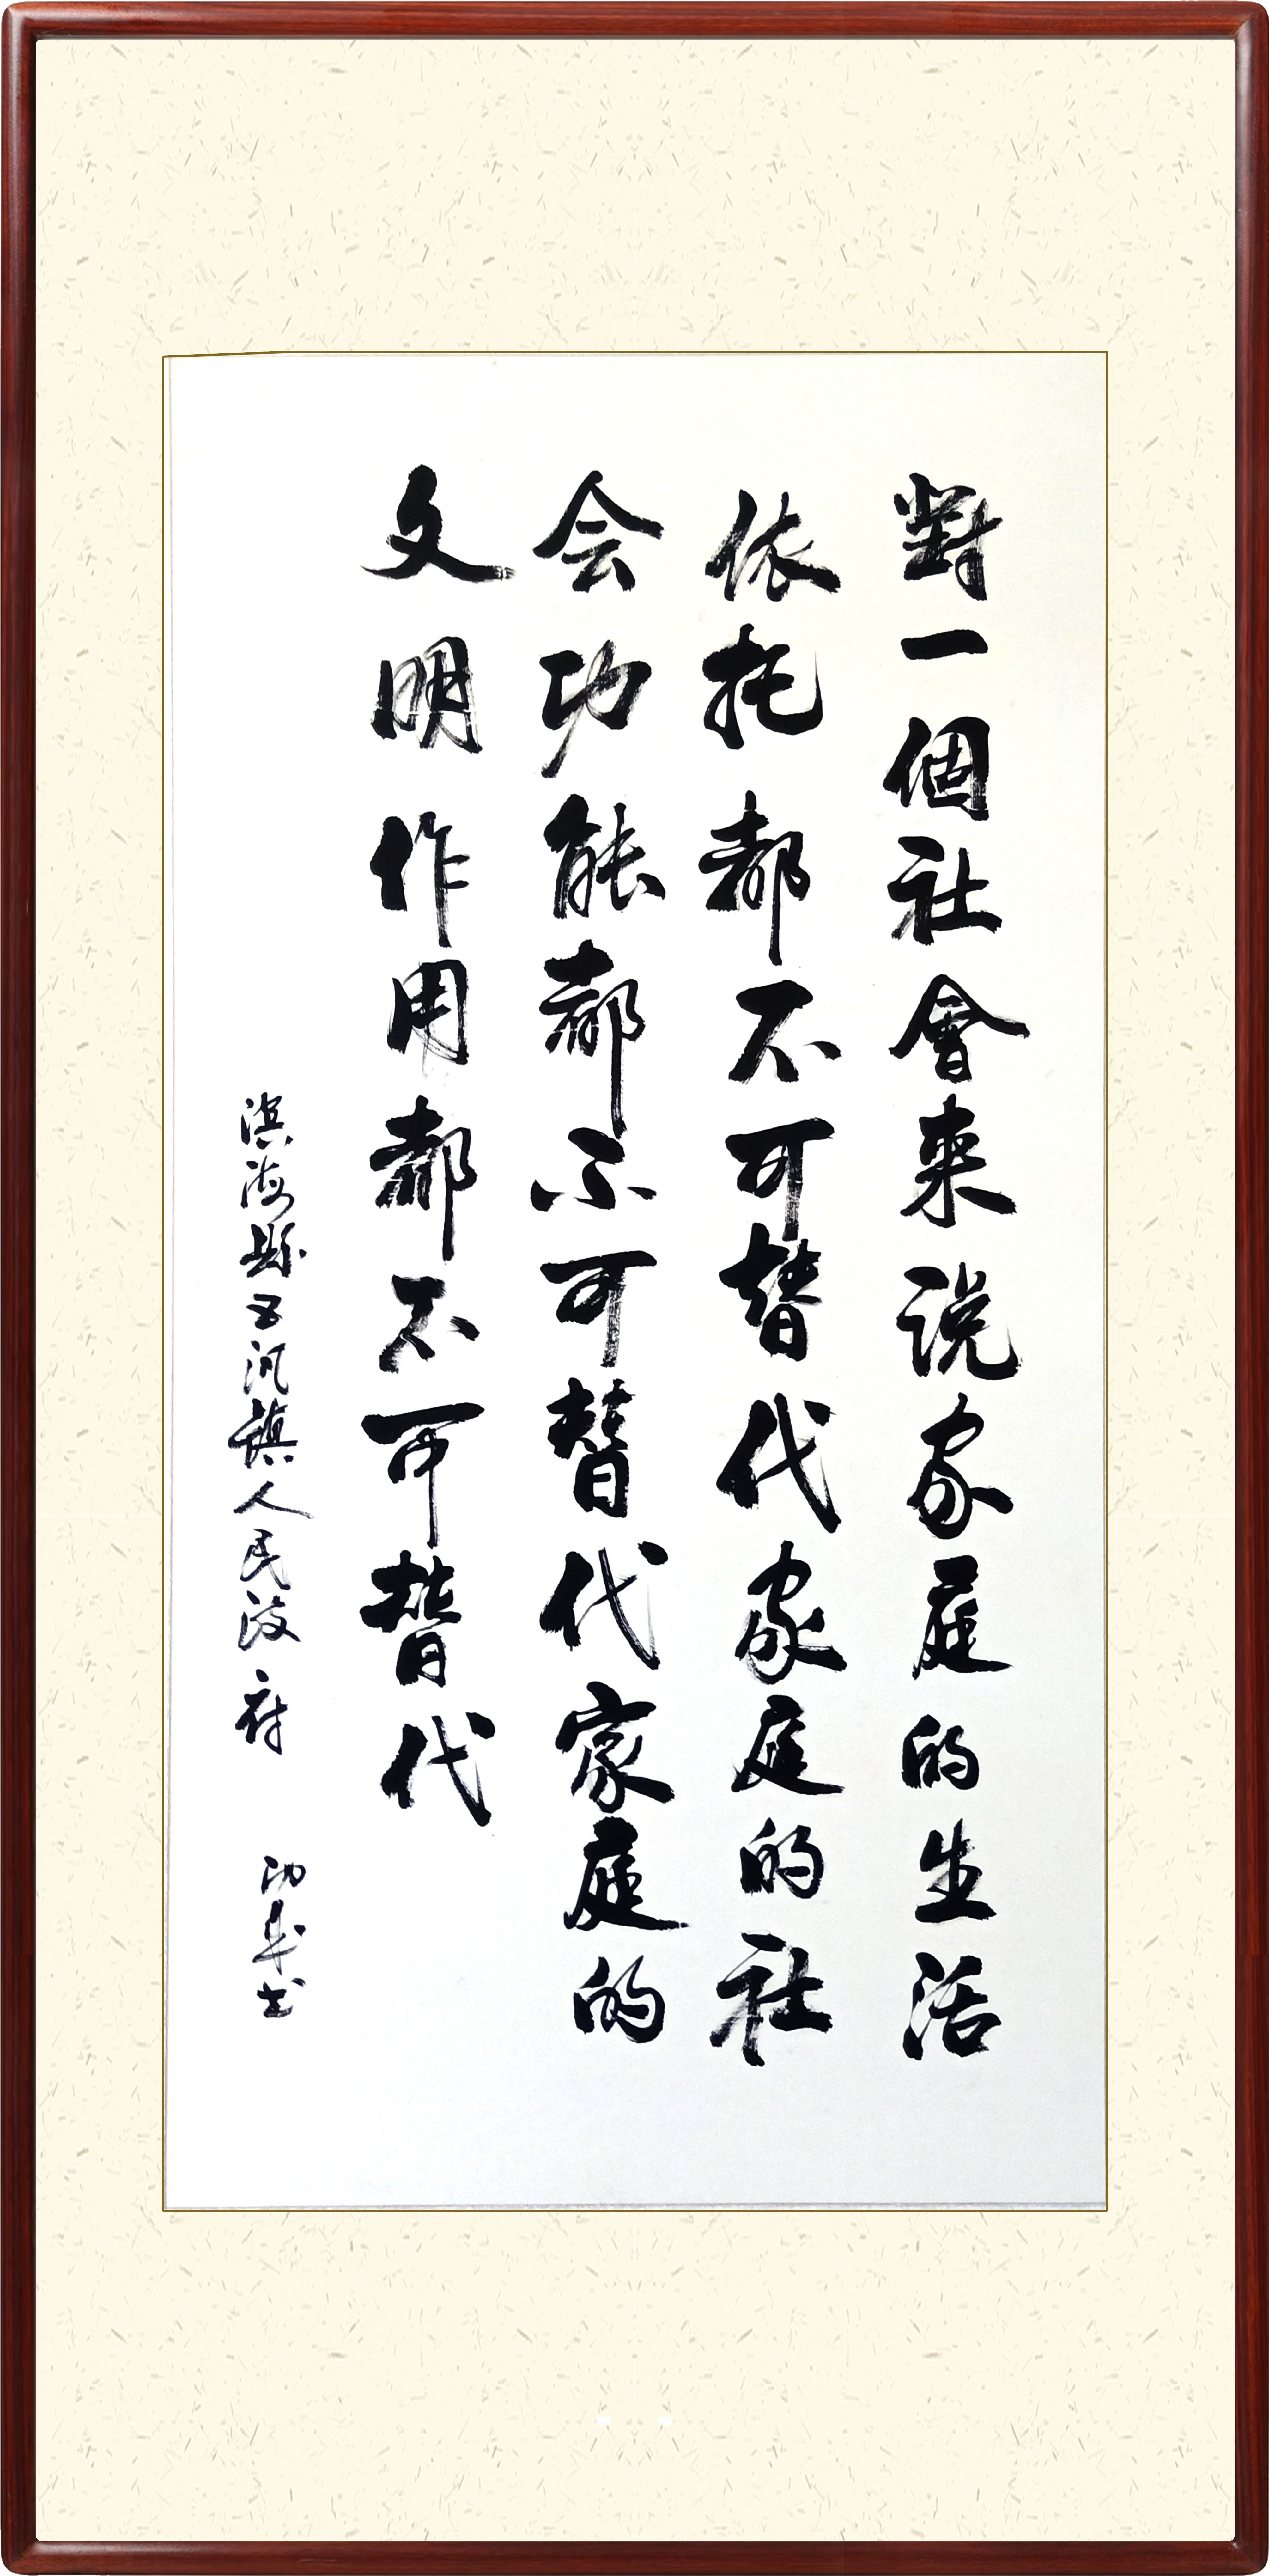 對一個社會来说家庭的生活
依托都不可替代家庭的社
会功能都不可替代家庭的
文明作用都不可替代
滨海縣五汛镇人民政府 功華书